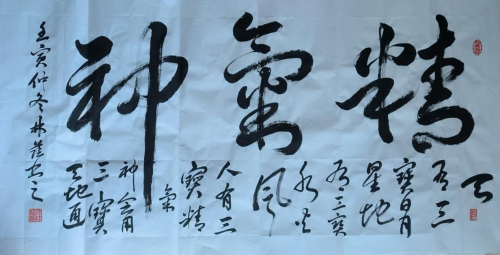 精氣神
天
有三
寶日月
星地
有三寶
水火
風
人有三
寶精
氣
神会用
三寶
天地通
壬寅仲冬林